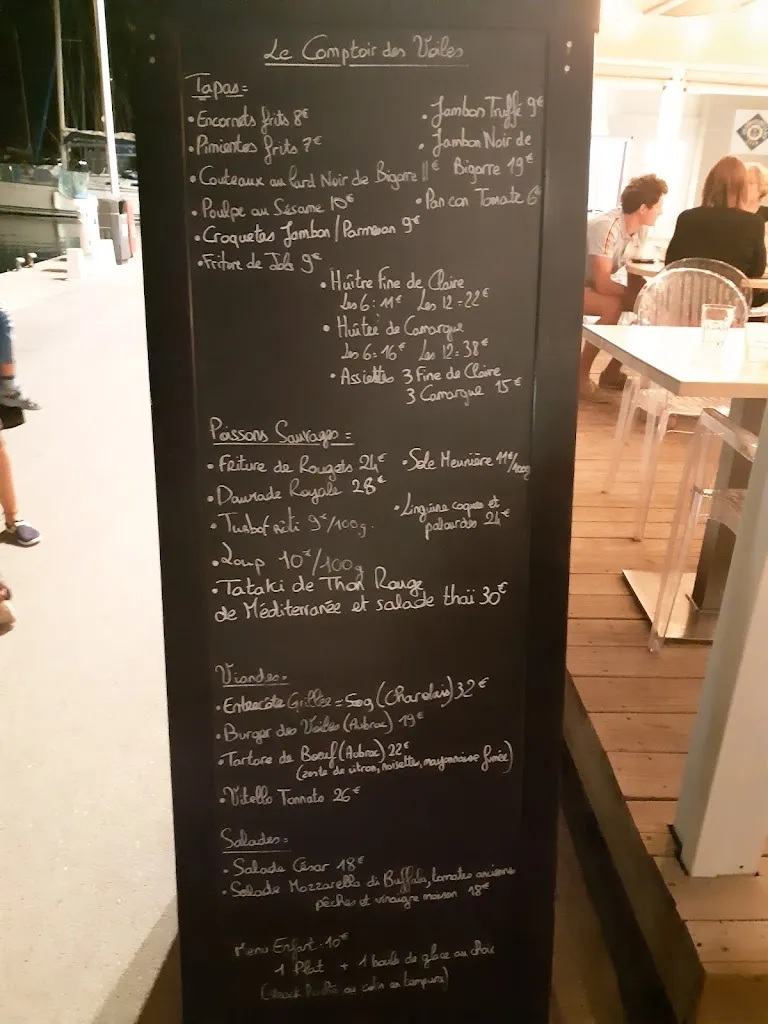 Le Comptoir des Voiles
Tapas =
• Encornets frits 8€
• Pimientos frits 7€
• Couteaux au Lard Noir de Bigorre 11€
• Poulpe au Sésame 10€
• Croquetas Jambon/Parmesan 9€
• Friture de Jols 9€
• Jambon Truffé 9€
• Jambon Noir de
Bigorre 19€
• Pan con Tomate 6€
• Huître Fine de Claire
Les 6 : 11€ Les 12 = 22€
• Huître de Camargue
Les 6 = 16€ Les 12 = 38€
• Assiettes 3 Fine de Claire
3 Camargue 15€
Poissons Sauvages =
• Friture de Rougets 24€
• Daurade Royale 28€
• Turbot rôti 9€/100g.
• Loup 10€/100g
• Sole Meunière 11€/100g
• Linguine coques et
palourdes 24€
• Tataki de Thon Rouge
de Méditerranée et salade thaï 30€
Viandes =
• Entrecôte Grillée = 500g (Charolais) 32€
• Burger des Voiles (Aubrac) 19€
• Tartare de Bœuf (Aubrac) 22€
(zeste de citron, noisette, mayonnaise fumée)
• Vitello Tonnato 26€
Salades =
• Salade César 18€
• Salade Mozzarella di Buffala, tomates anciennes
pêches et vinaigre maison 18€
Menu Enfant : 10€
1 Plat + 1 boule de glace au choix
(steack haché ou colin en tempura)